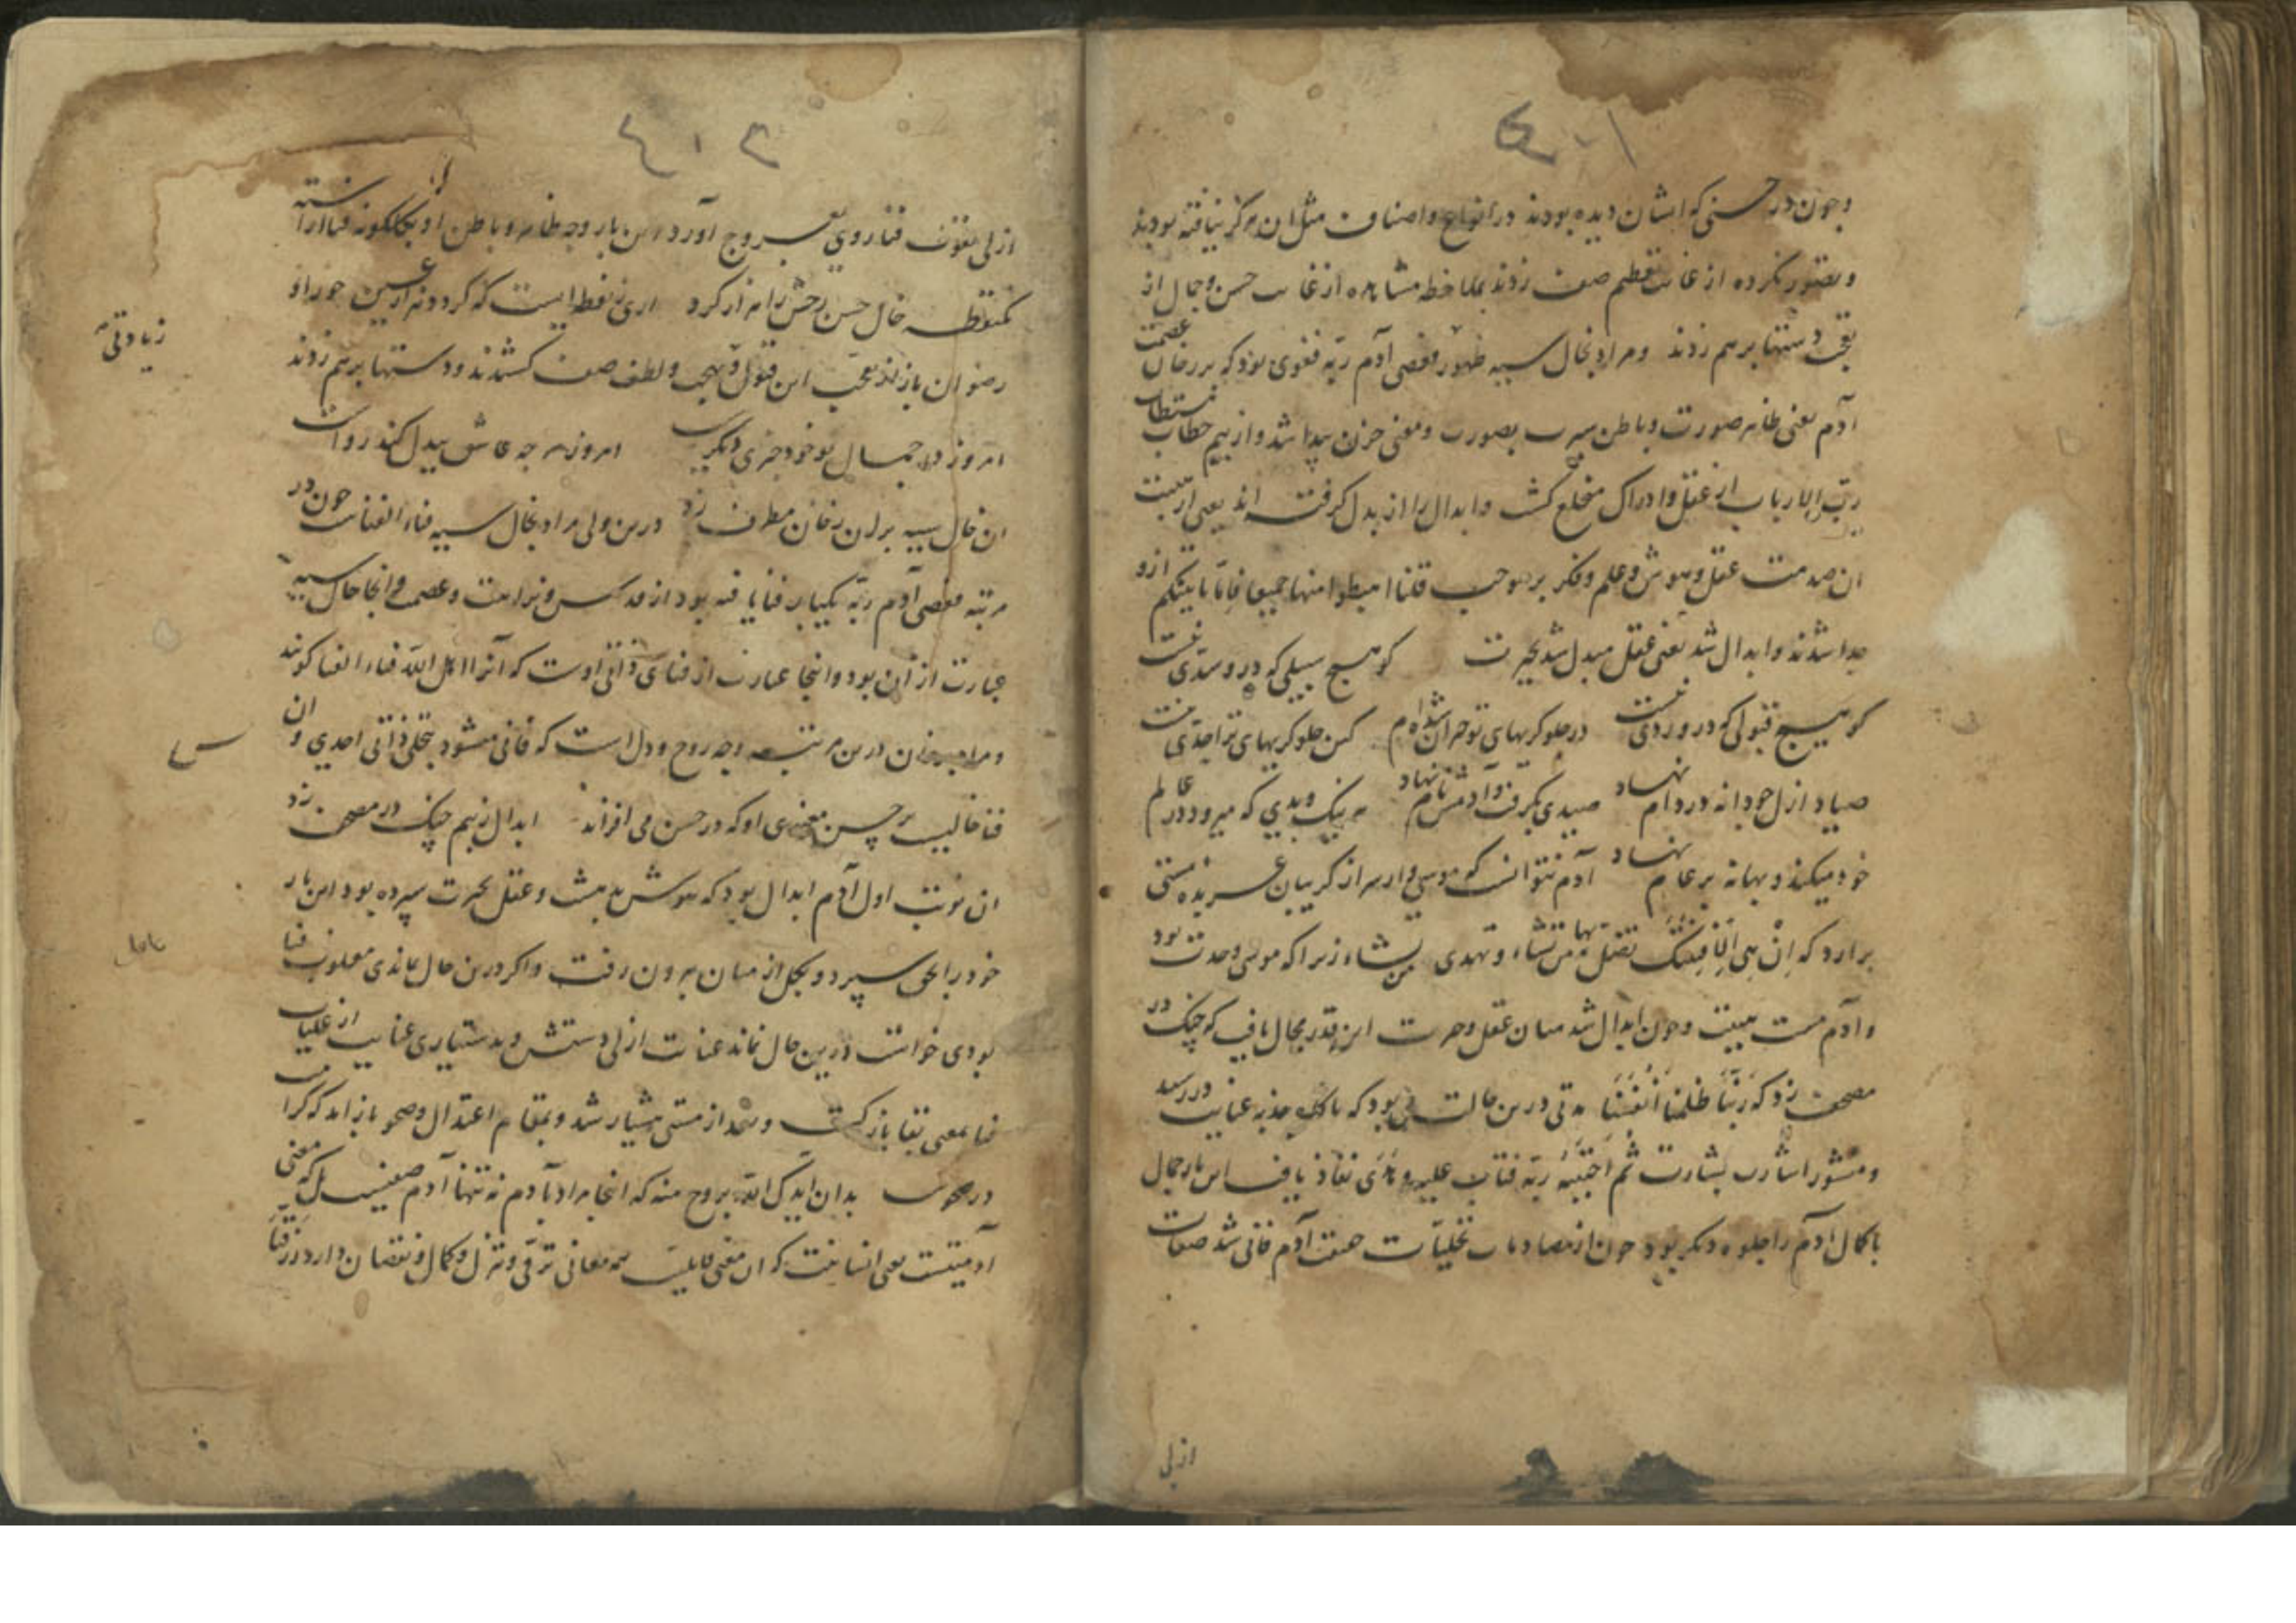 ٤٠١
وچون در حسنی که ایشان دیده بودند در انواع و اصناف مثل ان هرکز نیافته بودند
و تصور نکرده از غایت تعظیم صف زدند بملاحظه مشاهده از غایت حسن و جمال از
تعجب دستها برهم زدند و مراد بخال سیه ظهور فعصی آدم ربه فغوی بود که بر رخان عصمت
آدم یعنی ظاهر صورت و باطن سیرت بصورت و معنی حزن پیدا شد و از بیم خطاب
رب الارباب از عقل و ادراک منخلع کشت و ابدال را از بدل کرفته اند یعنی از هیبت
ان صدمت عقل و هوش و علم و فکر برموجب قلنا اهبطوا منها جمیعا فاما یاتینکم ازو
جدا شدند و ابدال شد یعنی عقل مبدل شد بحیرت کو هیچ سبیلی که درو سدی نیست
کو هیچ قبولی که درو ردی نیست در جلوکریهای تو حیران شده ام کین جلوکریهای ترا حدی نیست
صیاد ازل چو دانه در دام نهاد صیدی بکرفت و آدمش نام نهاد هر نیک و بدی که میرود در عالم
خود میکند و بهانه بر عام نهاد آدم نتوانست که موسی وار سر از کریبان عربده مستی
برارد که اِنْ هِیَ اِلّا فِتْنَتُکَ تضل بها من تشاء و تهدی من تشاء زیرا که موسی وحدت بود
و آدم مست هیبت و چون ابدال شد میان عقل و حیرت این قدر مجال یافت که چنک در
مصحف زد که رَبَّنا ظَلَمنا اَنفُسَنا مدتی درین حالت می بود که ناکاه جذبه عنایت در رسید
و منشور اشارت بشارت ثم اجتبیه ربه فتاب علیه و هدی نفاذ یافت این بار جمال
با کمال آدم را جلوه دیکر بود چون از مصادمات تجلیات هستی آدم فانی شد صفات
ازلی
٤٠٢
ازلی بقوت فنا روی بعروج آورد این بار وجه ظاهر و باطن او بکلکونه فنا اراسته
نقطه خال حسن رخش را هزار کرد اری نقطه ایست که کرد ونه از حور او
رضوان باز از تعجب این قبول و بهجت و لطف صف کشیدند و دستها برهم زدند
زیادتی
امروز در جمال تو خود چیزی دیکرست امروز هرچه عاشق بیدل کند رواست
ان خال سیه بران رخان مطرف زد درین ولی مراد بخال سیه فناء الفناست چون در
مرتبه فعصی آدم ربه یکبار فنا یافته بود از قدس و نزاهت و عصمت و انجا خال سیه
عبارت از ان بود و اینجا عبارت از فنای ذاتی اوست که آنرا اهل الله فناء الفنا کویند
و مراد برخان درین مرتبه وجه روح و دل است که فانی میشود بتجلی ذاتی احدی و ان
فنا خالیست بر حسن معنوی او که در حسن می افزاند ابدال ز بیم چنک در مصحف زد
ان نوبت اول آدم ابدال بود که هوش بدهشت و عقل بحیرت سپرده بود این بار
خود را بحق سپرد و بکل از میان بیرون رفت و اکر درین حال بماندی مغلوب فنا
بودی خواست درین حال نماند عنایت ازلی دستش و بدستیاری عنایت از غلبات
فنا بمعنی بقا باز کشت و بعد از مستی هشیار شد و بمقام اعتدال و صحو باز امد که کرامت
بدان ایدک الله بروح منه که اینجا مراد بآدم نه تنها آدم صفیست بل که معنی
آدمیتست یعنی انسانیت که ان معنی قابلیت همه معانی ترقی و تنزل و کمال و نقصان دارد